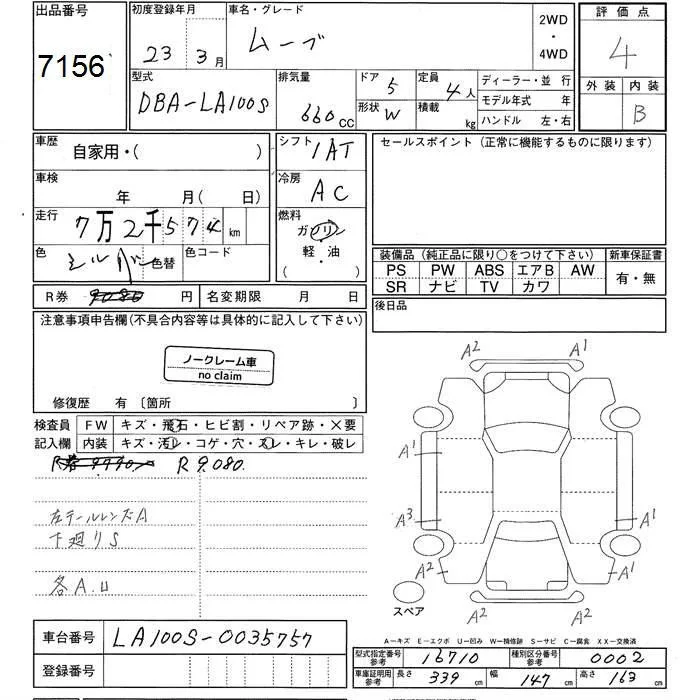 出品番号
7156
初度登録年月
23 3月
車名・グレード
ムーブ
2WD
・
4WD
評価点
4
外装 内装
B
型式
DBA-LA100S
排気量
660cc
ドア 5
形状 W
定員 4人
積載 kg
ディーラー・並行
モデル年式 年
ハンドル 左・右
車歴
自家用・( )
シフト
IAT
セールスポイント(正常に機能するものに限ります)
車検
年 月(日)
冷房
AC
走行
7万2千574km
燃料
ガソリン
軽・油
( )
色
シルバー
色替
色コード
装備品(純正品に限り○をつけて下さい)
新車保証書
PS PW ABS エアB AW
SR ナビ TV カワ
有・無
R券 9080 円
名変期限 月 日
後日品
注意事項申告欄(不具合内容等は具体的に記入して下さい)
ノークレーム車
no claim
修復歴 有 〔箇所 〕
検査員
記入欄
FW キズ・飛石・ヒビ割・リペア跡・×要
内装 キズ・汚レ・コゲ・穴・スレ・キレ・破レ
R券 9990 R 9.080.
左テールレンズA
下廻りS
各A.U
A2 A1
A1
A3 A1
A2 A2
スペア
車台番号
LA100S-0035757
登録番号
A-キズ E-エクボ U-凹み W-補修跡 S-サビ C-腐食 XX-交換済
型式指定番号
参考
16710
種別区分番号
参考
0002
車庫証明用
参考
長さ 339cm
幅 147cm
高さ 163cm